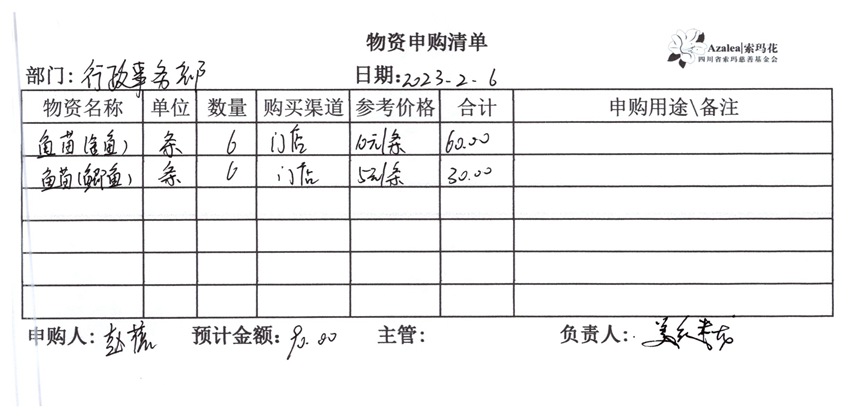 物资申购清单
Azalea|索玛花
四川省索玛慈善基金会
部门:行政事务部 日期:2023-2-6
物资名称 单位 数量 购买渠道 参考价格 合计 申购用途\备注
鱼苗(金鱼) 条 6 门店 10元/条 60.00
鱼苗(鲫鱼) 条 6 门店 5元/条 30.00
申购人: 赵 预计金额: 90.00 主管: 负责人: